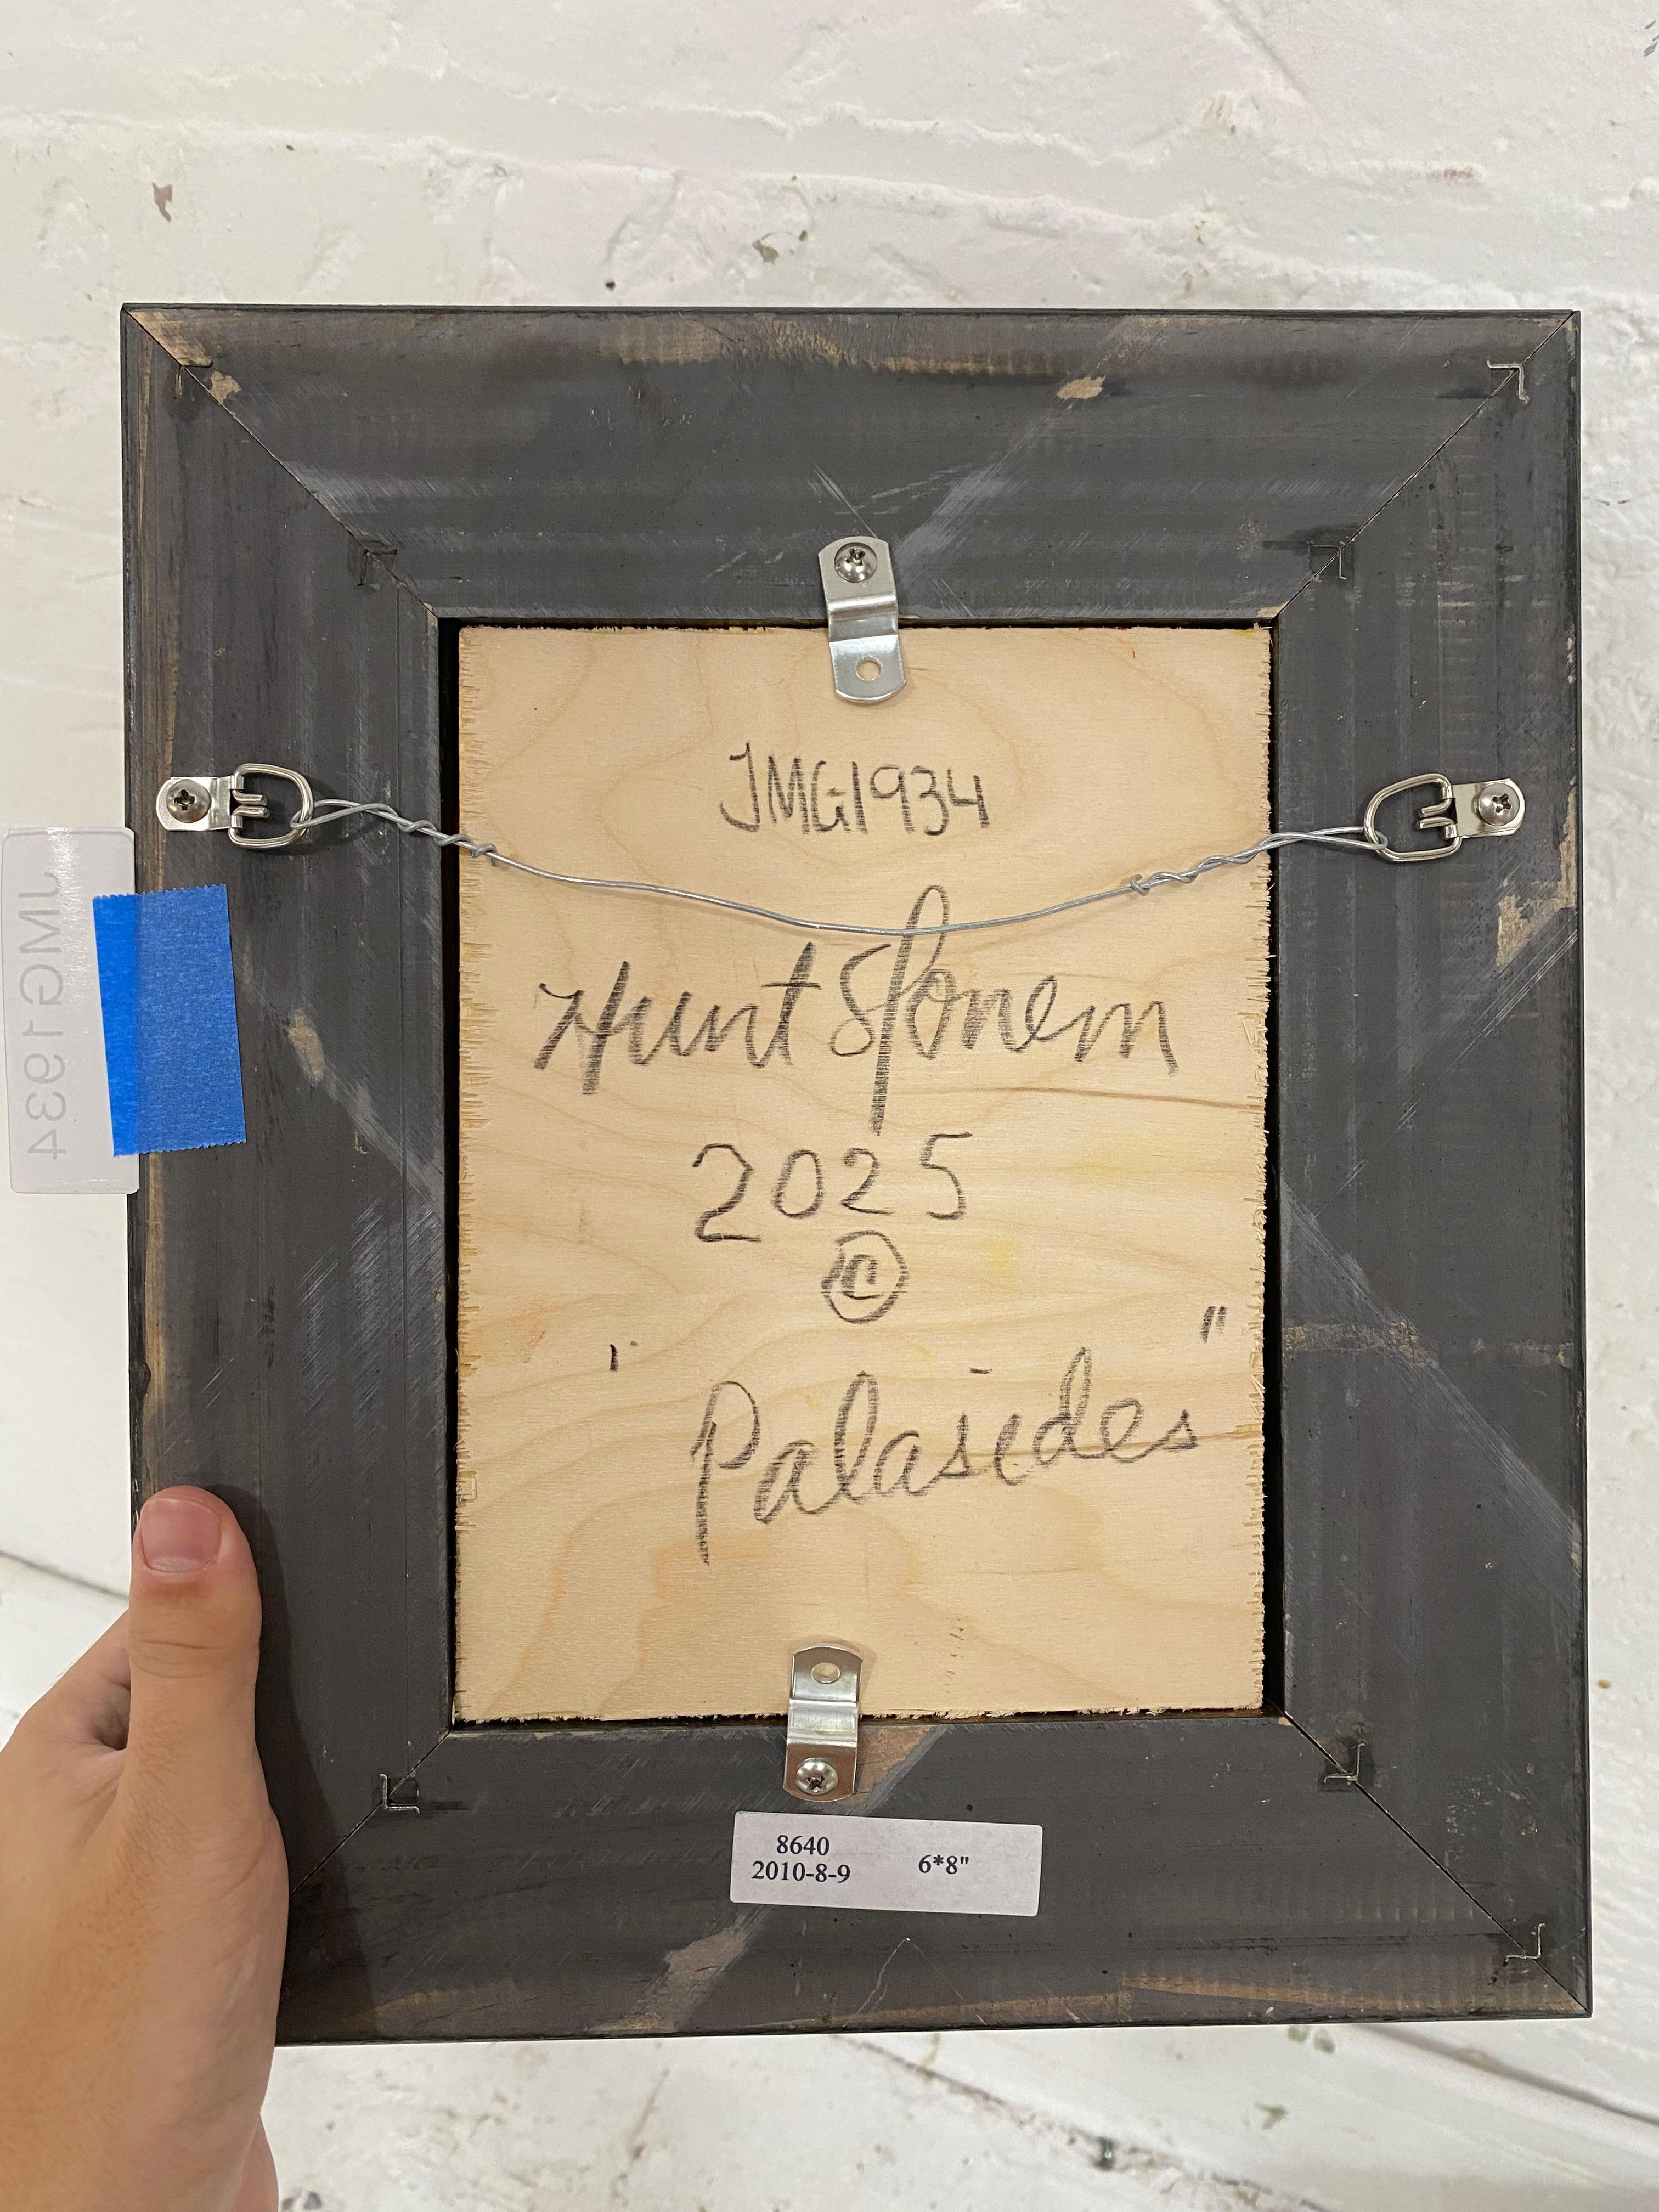 JMG1934
Hunt Slonem
2025
©
"Palasides"
JMG1934
8640
2010-8-9 6*8"